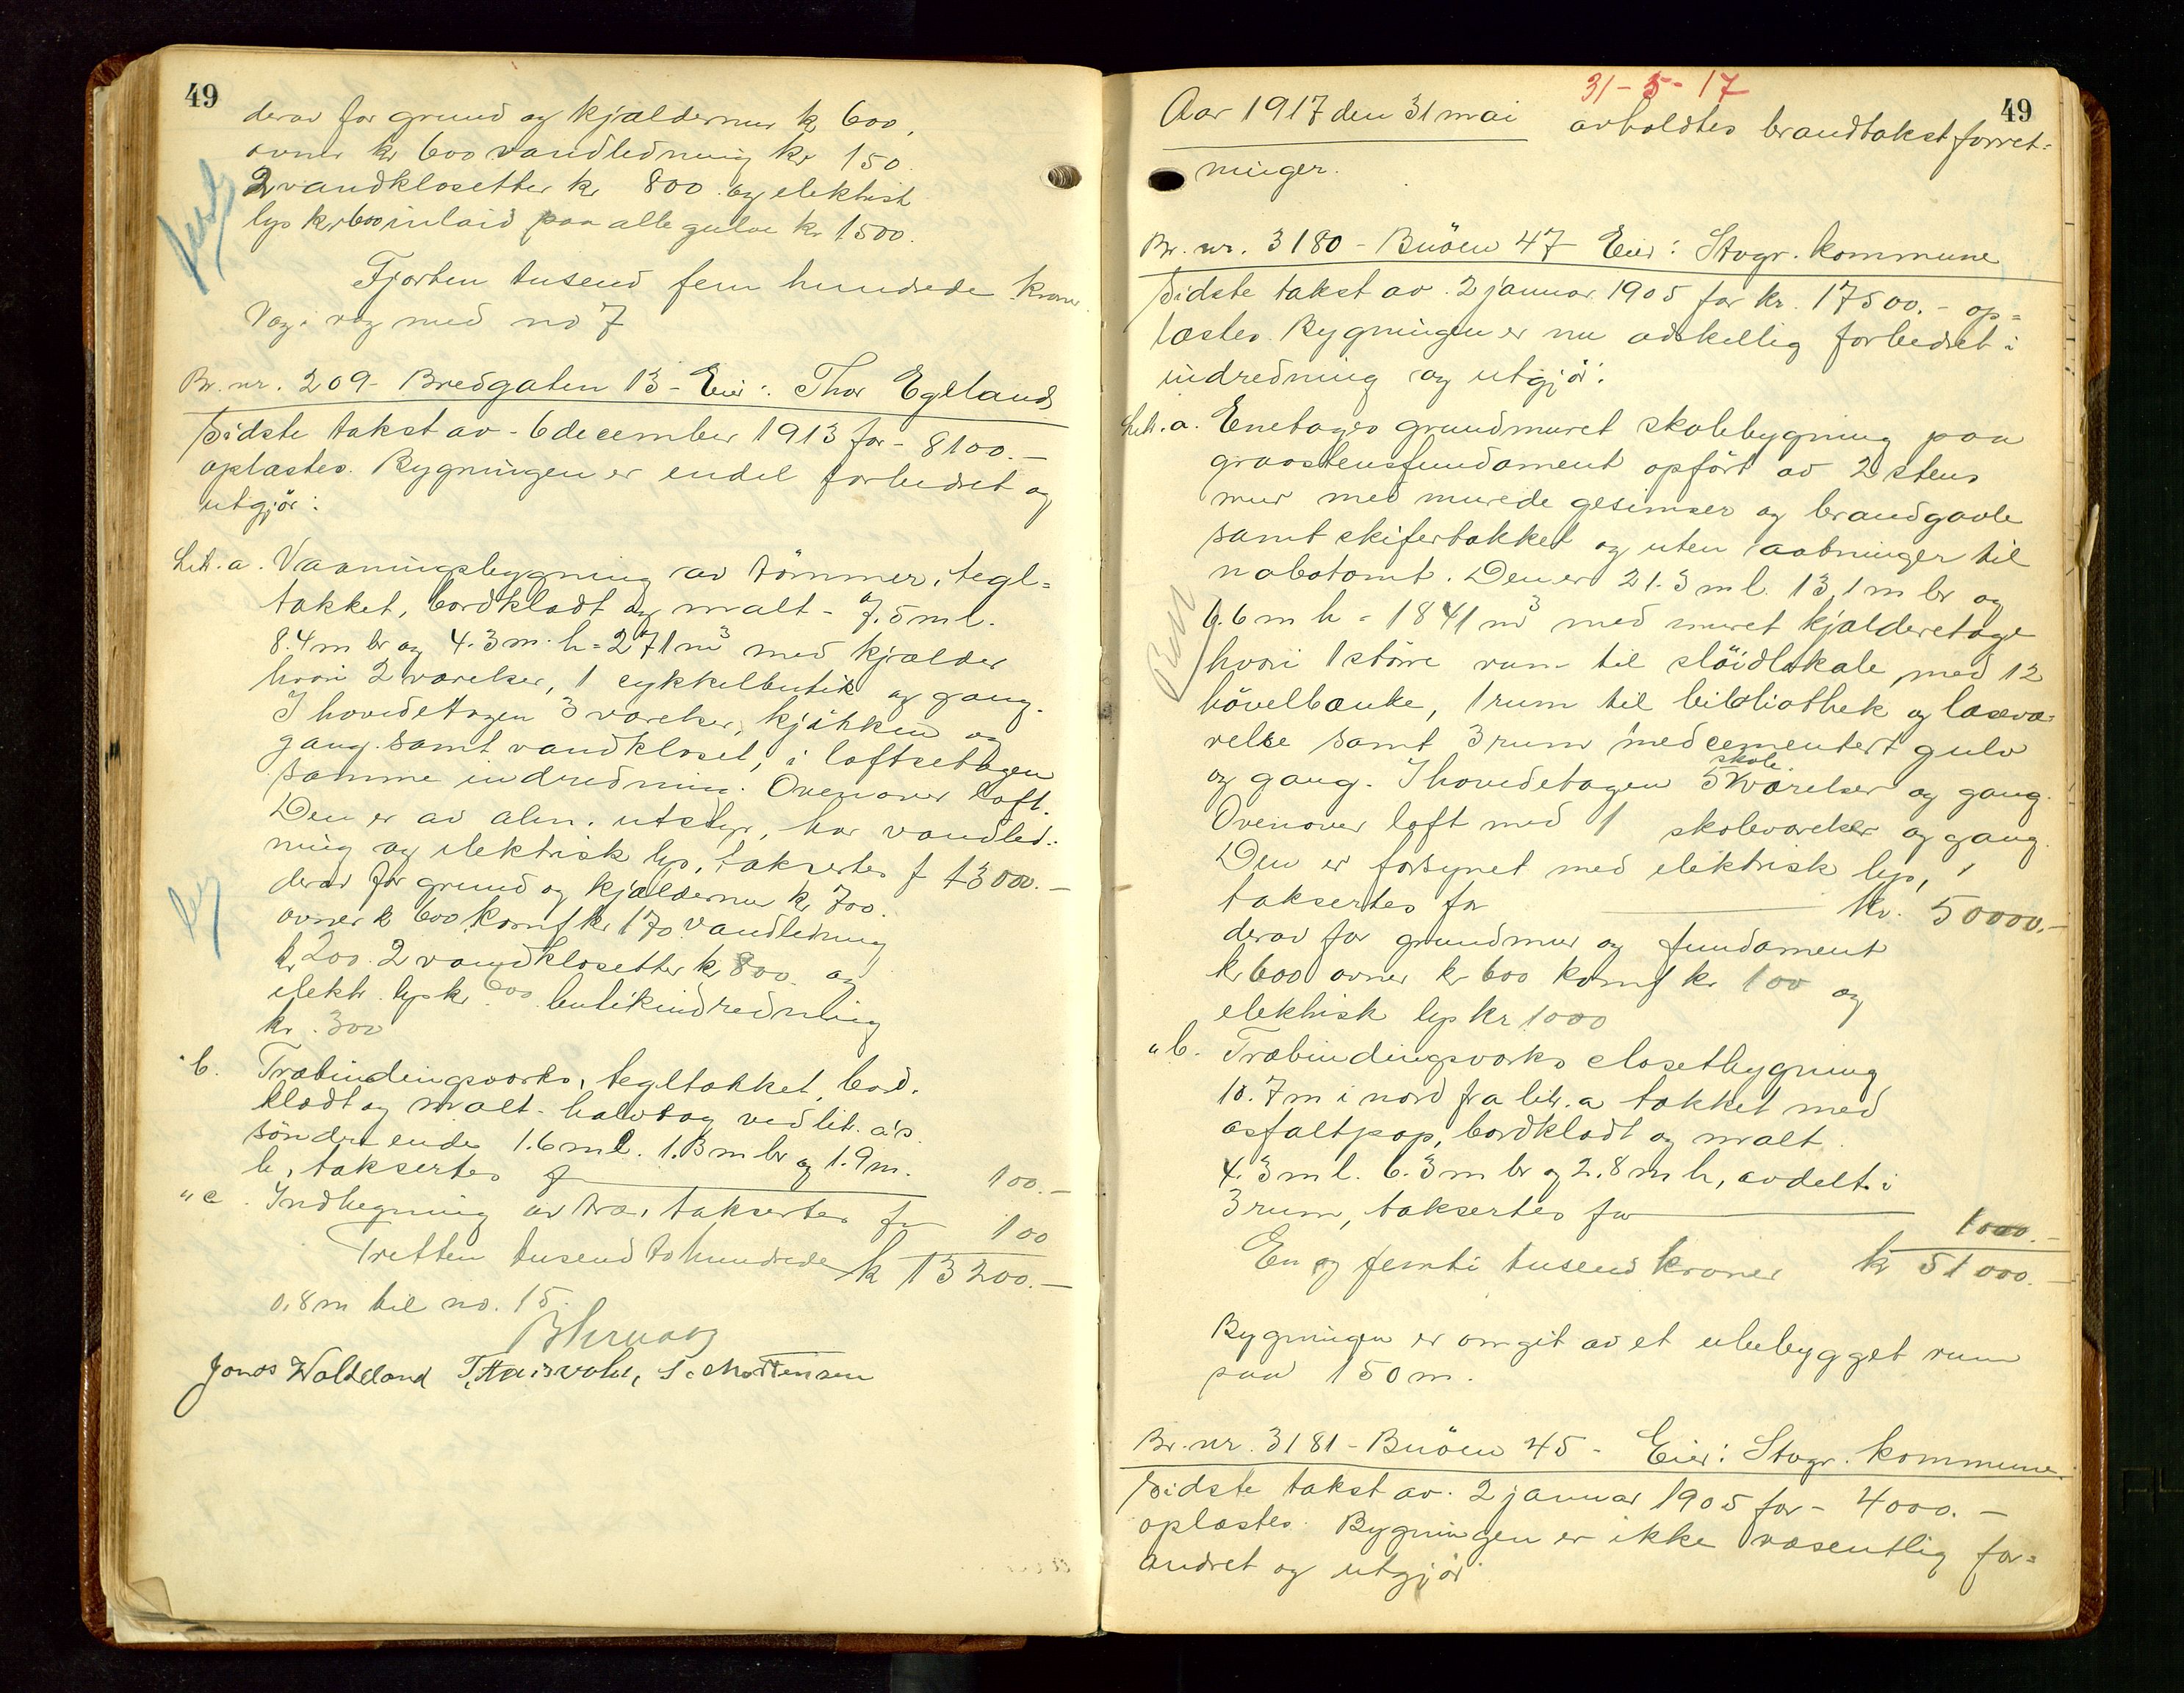 49
derav for grund og kjældermur kr 600,
ovner kr 600 vandledning kr 150.
2 vandklosetter kr 800 og elektrisk
lys kr 600 inlaid paa alle gulve kr 1500.
Fjorten tusend fem hundrede kroner
Væg i væg med no 7
Br. nr. 209 - Bredgaten 13 - Eier: Thor Egeland
Sidste takst av - 6 december 1913 for - 8100.-
oplæstes. Bygningen er endel forbedret og
utgjør:
Lit. a. Vaaningsbygning av tømmer, tegl=
takket, bordklædt og malt - 7.5 m l.
8.4 m br og 4.3 m. h = 271 m³ med kjælder
hvori 2 værelser, 1 cykkelbutik og gang.
I hovedetagen 3 værelser, kjøkken og
gang samt vandkloset, i loftsetagen
samme indredning. Ovenover loft.
Den er av alm. utstyr, har vandled-
ning og elektrisk lys, taksertes f 13000.-
derav for grund og kjældermur kr 700.
ovner kr 600 komf kr 170 vandledning
kr 200. 2 vandklosetter kr 800 og
elektr. lys kr 600 butikindredning
kr. 300
" b. Træbindingsverks, tegltakket, bord-
klædt og malt - halvtag ved lit. a's
søndre ende 1.6 m l. 1.3 m br og 1.9 m.
h, taksertes f 100.-
" c. Indhegning av træ, taksertes for 100
Tretten tusend to hundrede kr 13200.-
0,8 m til no. 15.
Jonas Waldeland S. Mortensen
31-5-17
49
Aar 1917 den 31 mai avholdtes brandtakstforret=
ninger.
Br. nr. 3180 - Buöen 47 - Eier: Stvgr. kommune
Sidste takst av 2 januar 1905 for kr. 17500.- op=
læstes. Bygningen er nu adskillig forbedret i
indredning og utgjør:
Lit. a. Enetages grundmuret skolebygning paa
graastensfundament opført av 2 stens
mur med murede gesimser og brandgavle
samt skifertakket og uten aabninger til
nabotomt. Den er 21.3 m l. 13,1 m br og
6.6 m h = 1841 m³ med muret kjælderetage
hvori 1 større rum til sløidlokale med 12
høvelbænke, 1 rum til bibliothek og læsevæ-
relse samt 3 rum med cementert gulv
og gang. I hovedetagen 5 skoleværelser og gang.
Ovenover loft med 1 skoleværelse og gang.
Den er forsynet med elektrisk lys,
taksertes for kr. 50000.-
derav for grundmur og fundament
kr 600 ovner kr 600 komf kr 100 og
elektrisk lys kr 1000
" b. Træbindingsverks closetbygning
10.7 m i nord fra litr. a takket med
asfaltpap, bordklædt og malt.
4.3 m l. 6.3 m br og 2.8 m h, avdelt i
3 rum, taksertes for 1000.-
En og femti tusend kroner kr 51000.-
Bygningen er omgit av et ubebygget rum
paa 150 m.
Br. nr. 3181 - Buöen 45 - Eier: Stvgr. kommune.
Sidste takst av 2 januar 1905 for - 4000.-
oplæstes. Bygningen er ikke væsentlig for=
andret og utgjør